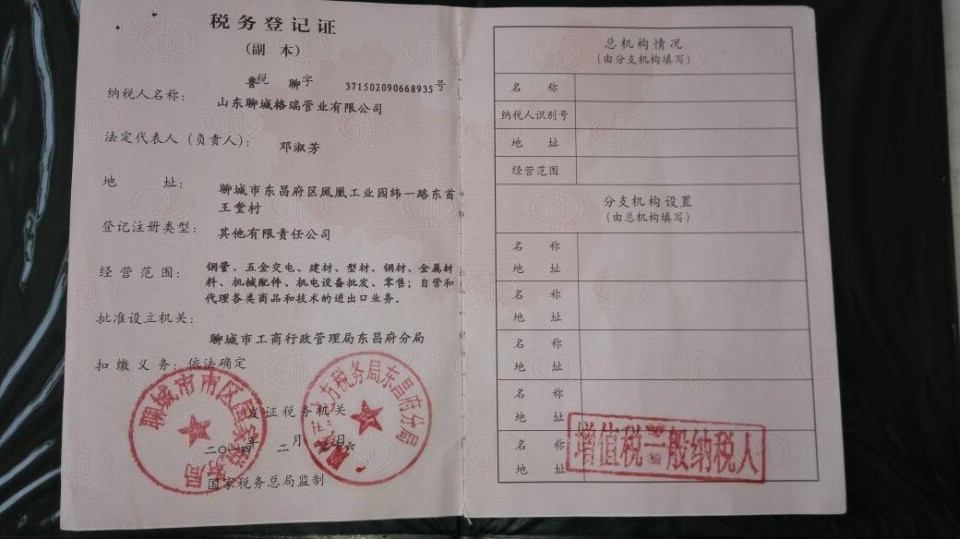 税务登记证
(副 本)
鲁税 聊字 371502090668935号
纳税人名称: 山东聊城格瑞管业有限公司
法定代表人(负责人): 邓淑芳
地 址: 聊城市东昌府区凤凰工业园纬一路东首
王堂村
登记注册类型: 其他有限责任公司
经营范围: 钢管、五金交电、建材、型材、钢材、金属材
料、机械配件、机电设备批发、零售;自营和
代理各类商品和技术的进出口业务.
批准设立机关:
聊城市工商行政管理局东昌府分局
扣缴义务: 依法确定
发证税务机关
二〇一四 年 二 月 六日
国家税务总局监制
聊城市市区国家税务局
地方税务局东昌府分局
总机构情况
(由分支机构填写)
名 称
纳税人识别号
地 址
经营范围
分支机构设置
(由总机构填写)
名 称
地 址
名 称
地 址
名 称
地 址
名 称
地 址
名 称
地 址
增值税一般纳税人